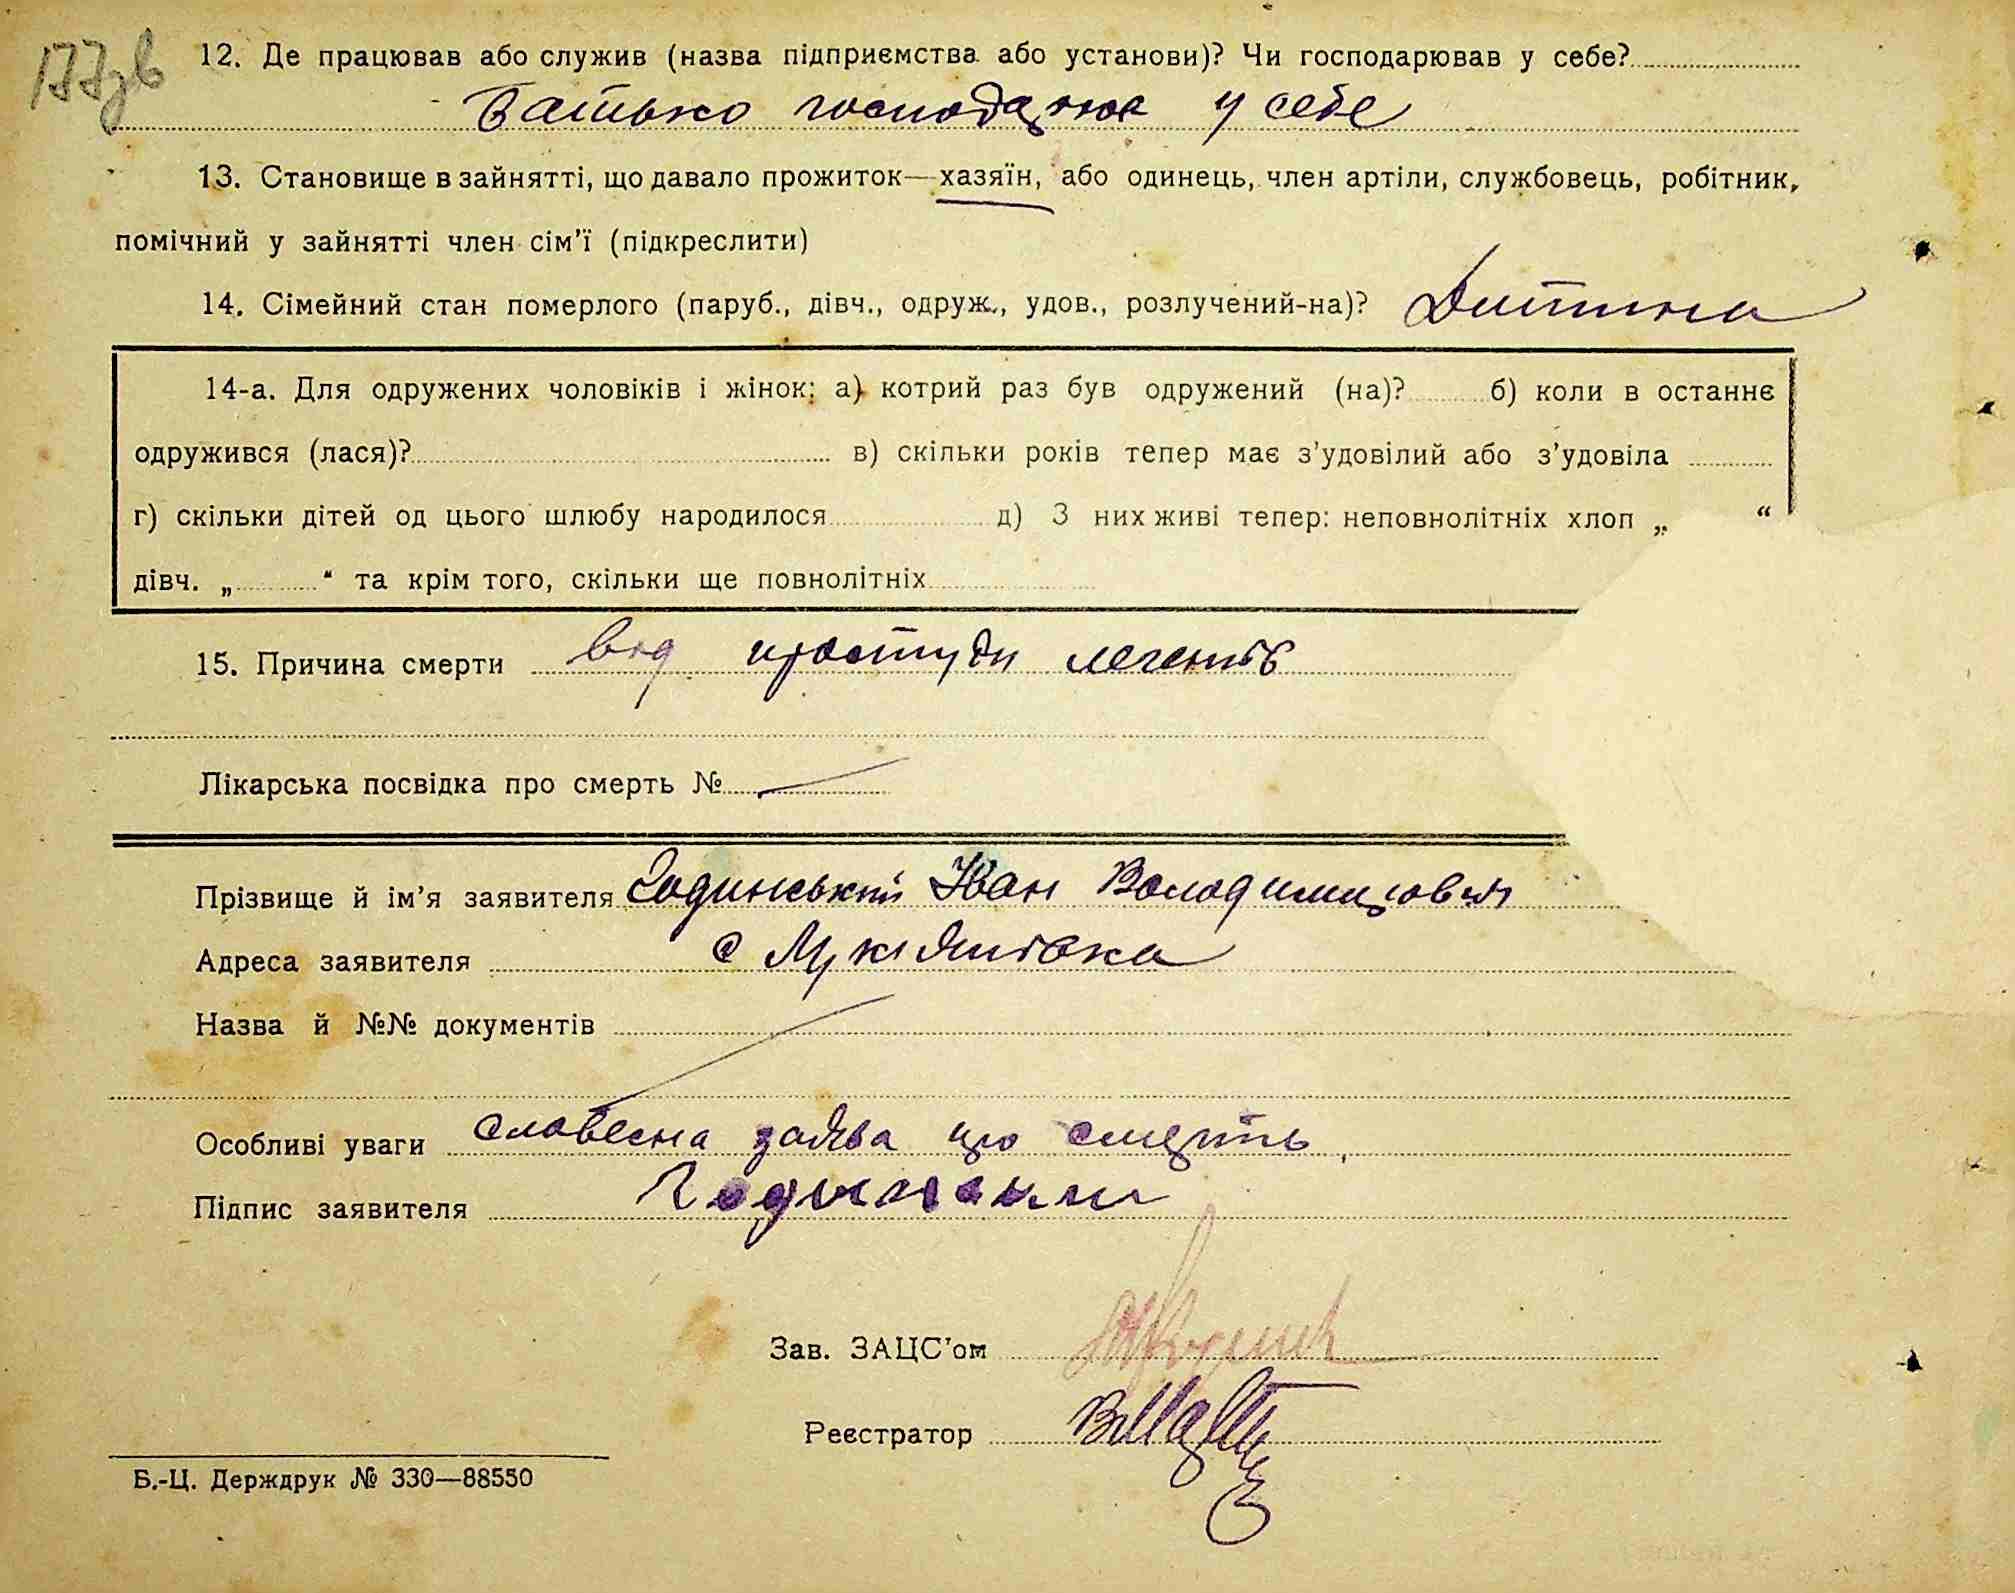 177зв
12. Де працював або служив (назва підприємства або установи)? Чи господарював у себе?
Батько господарює у себе
13. Становище в зайнятті, що давало прожиток—хазяїн, або одинець, член артіли, службовець, робітник,
помічний у зайнятті член сім'ї (підкреслити)
14. Сімейний стан померлого (паруб., дівч., одруж., удов., розлучений-на)? Дитина
14-а. Для одружених чоловіків і жінок: а) котрий раз був одружений (на)? б) коли в останнє
одружився (лася)? в) скільки років тепер має з'удовілий або з'удовіла
г) скільки дітей од цього шлюбу народилося д) З них живі тепер: неповнолітніх хлоп „ “
дівч. „ “ та крім того, скільки ще повнолітніх
15. Причина смерти від простуди легенів
Лікарська посвідка про смерть №
Прізвище й ім'я заявителя Годинський Іван Володимирович
Адреса заявителя с Лукʼянівка
Назва й №№ документів
Особливі уваги словесна заява про смерть
Підпис заявителя
Зав. ЗАЦС'ом
Реєстратор
Б.-Ц. Держдрук № 330—88550